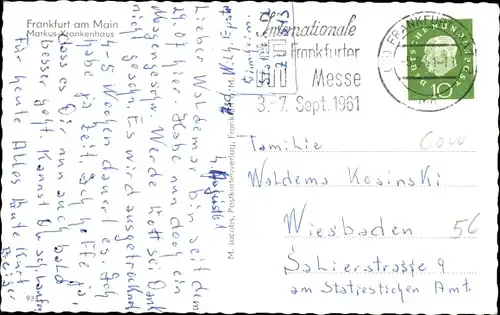 Frankfurt am Main
Markus-Krankenhaus
Lieber Waldemar bin seit dem
24.07 hier. Habe nun doch ein
Magengeschwür. Werde Gott sei Dank
nicht gesch. Es wird ausgetrocknet
4-5 Wochen dauert es. Ich
habe ja Zeit. Ich hoffe ja
dass es Dir nun auch bald
besser geht. Kannst Du schlaufen
Für heute Alles Gute Kurt
M. Jacobs, Postkartenverlag, Frankfurt
Internationale
Frankfurter
Messe
3.-7. Sept. 1961
FRANKFURT
DEUTSCHE BUNDESPOST
10
Familie
Waldema Kosinski
Wiesbaden 56
Sahierstrasse 9
am Statiestischen Amt.